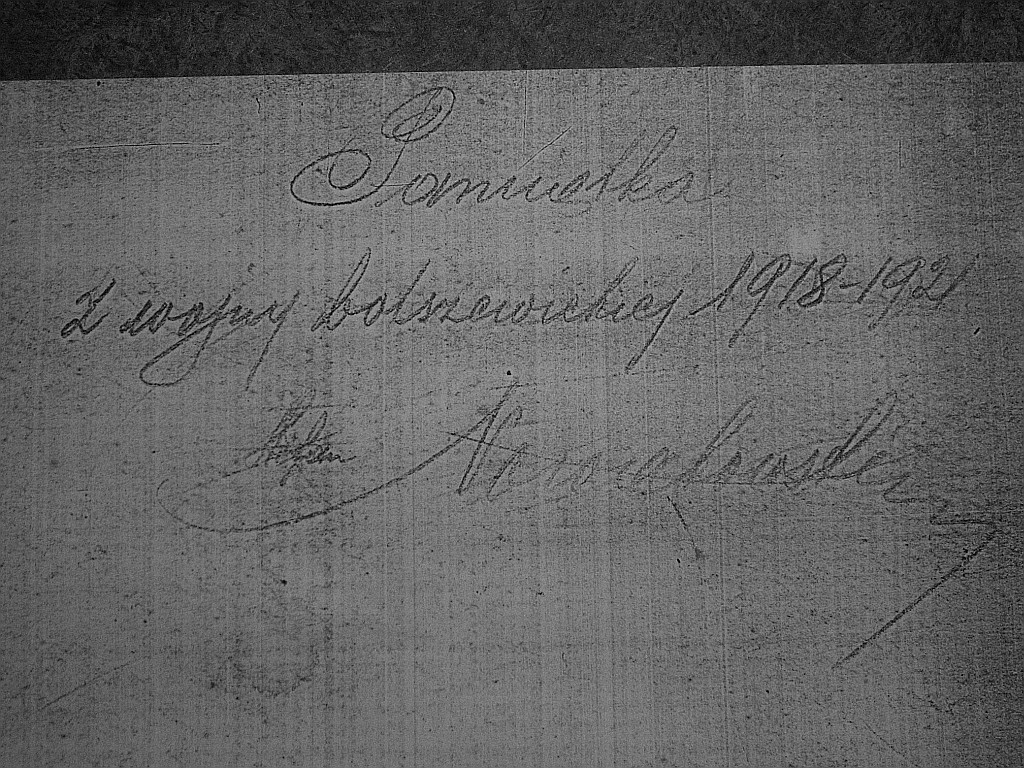 Pamiątka
z wojny bolszewickiej 1918-1921
Stefan Nowakowski